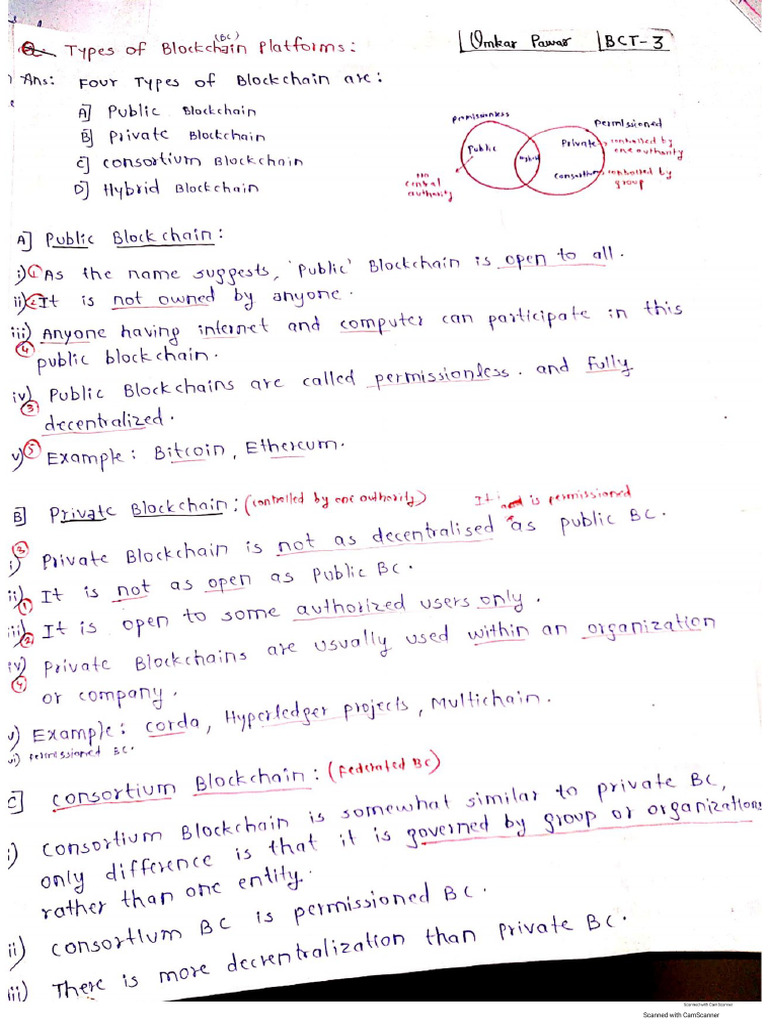 (BC)
Q. Types of Blockchain Platforms:
Omkar Pawar BCT-3
Ans: Four Types of Blockchain are:
A] Public Blockchain
B] Private Blockchain
C] Consortium Blockchain
D] Hybrid Blockchain
permissionless
permissioned
Public
Private
controlled by
one authority
Hybrid
no
central
authority
Consortium
controlled by
group
A] Public Blockchain:
i) ① As the name suggests, 'Public' Blockchain is open to all.
ii) ② It is not owned by anyone.
iii) Anyone having internet and computer can participate in this
④ public blockchain.
iv) Public Blockchains are called permissionless. and fully
③ decentralized.
v) ⑤ Example: Bitcoin, Ethereum.
B] Private Blockchain: (controlled by one authority) It is permissioned
③
i) Private Blockchain is not as decentralised as public BC.
ii) It is not as open as Public BC.
①
iii) It is open to some authorized users only.
②
iv) Private Blockchains are usually used within an organization
④ or company.
v) Example: corda, Hyperledger projects, Multichain.
vi) permissioned BC.
C] Consortium Blockchain: (Federated BC)
i) Consortium Blockchain is somewhat similar to private BC,
only difference is that it is governed by group or organizations
rather than one entity.
ii) Consortium BC is permissioned BC.
iii) There is more decrentralization than private BC.
Scanned with CamScanner
Scanned with CamScanner